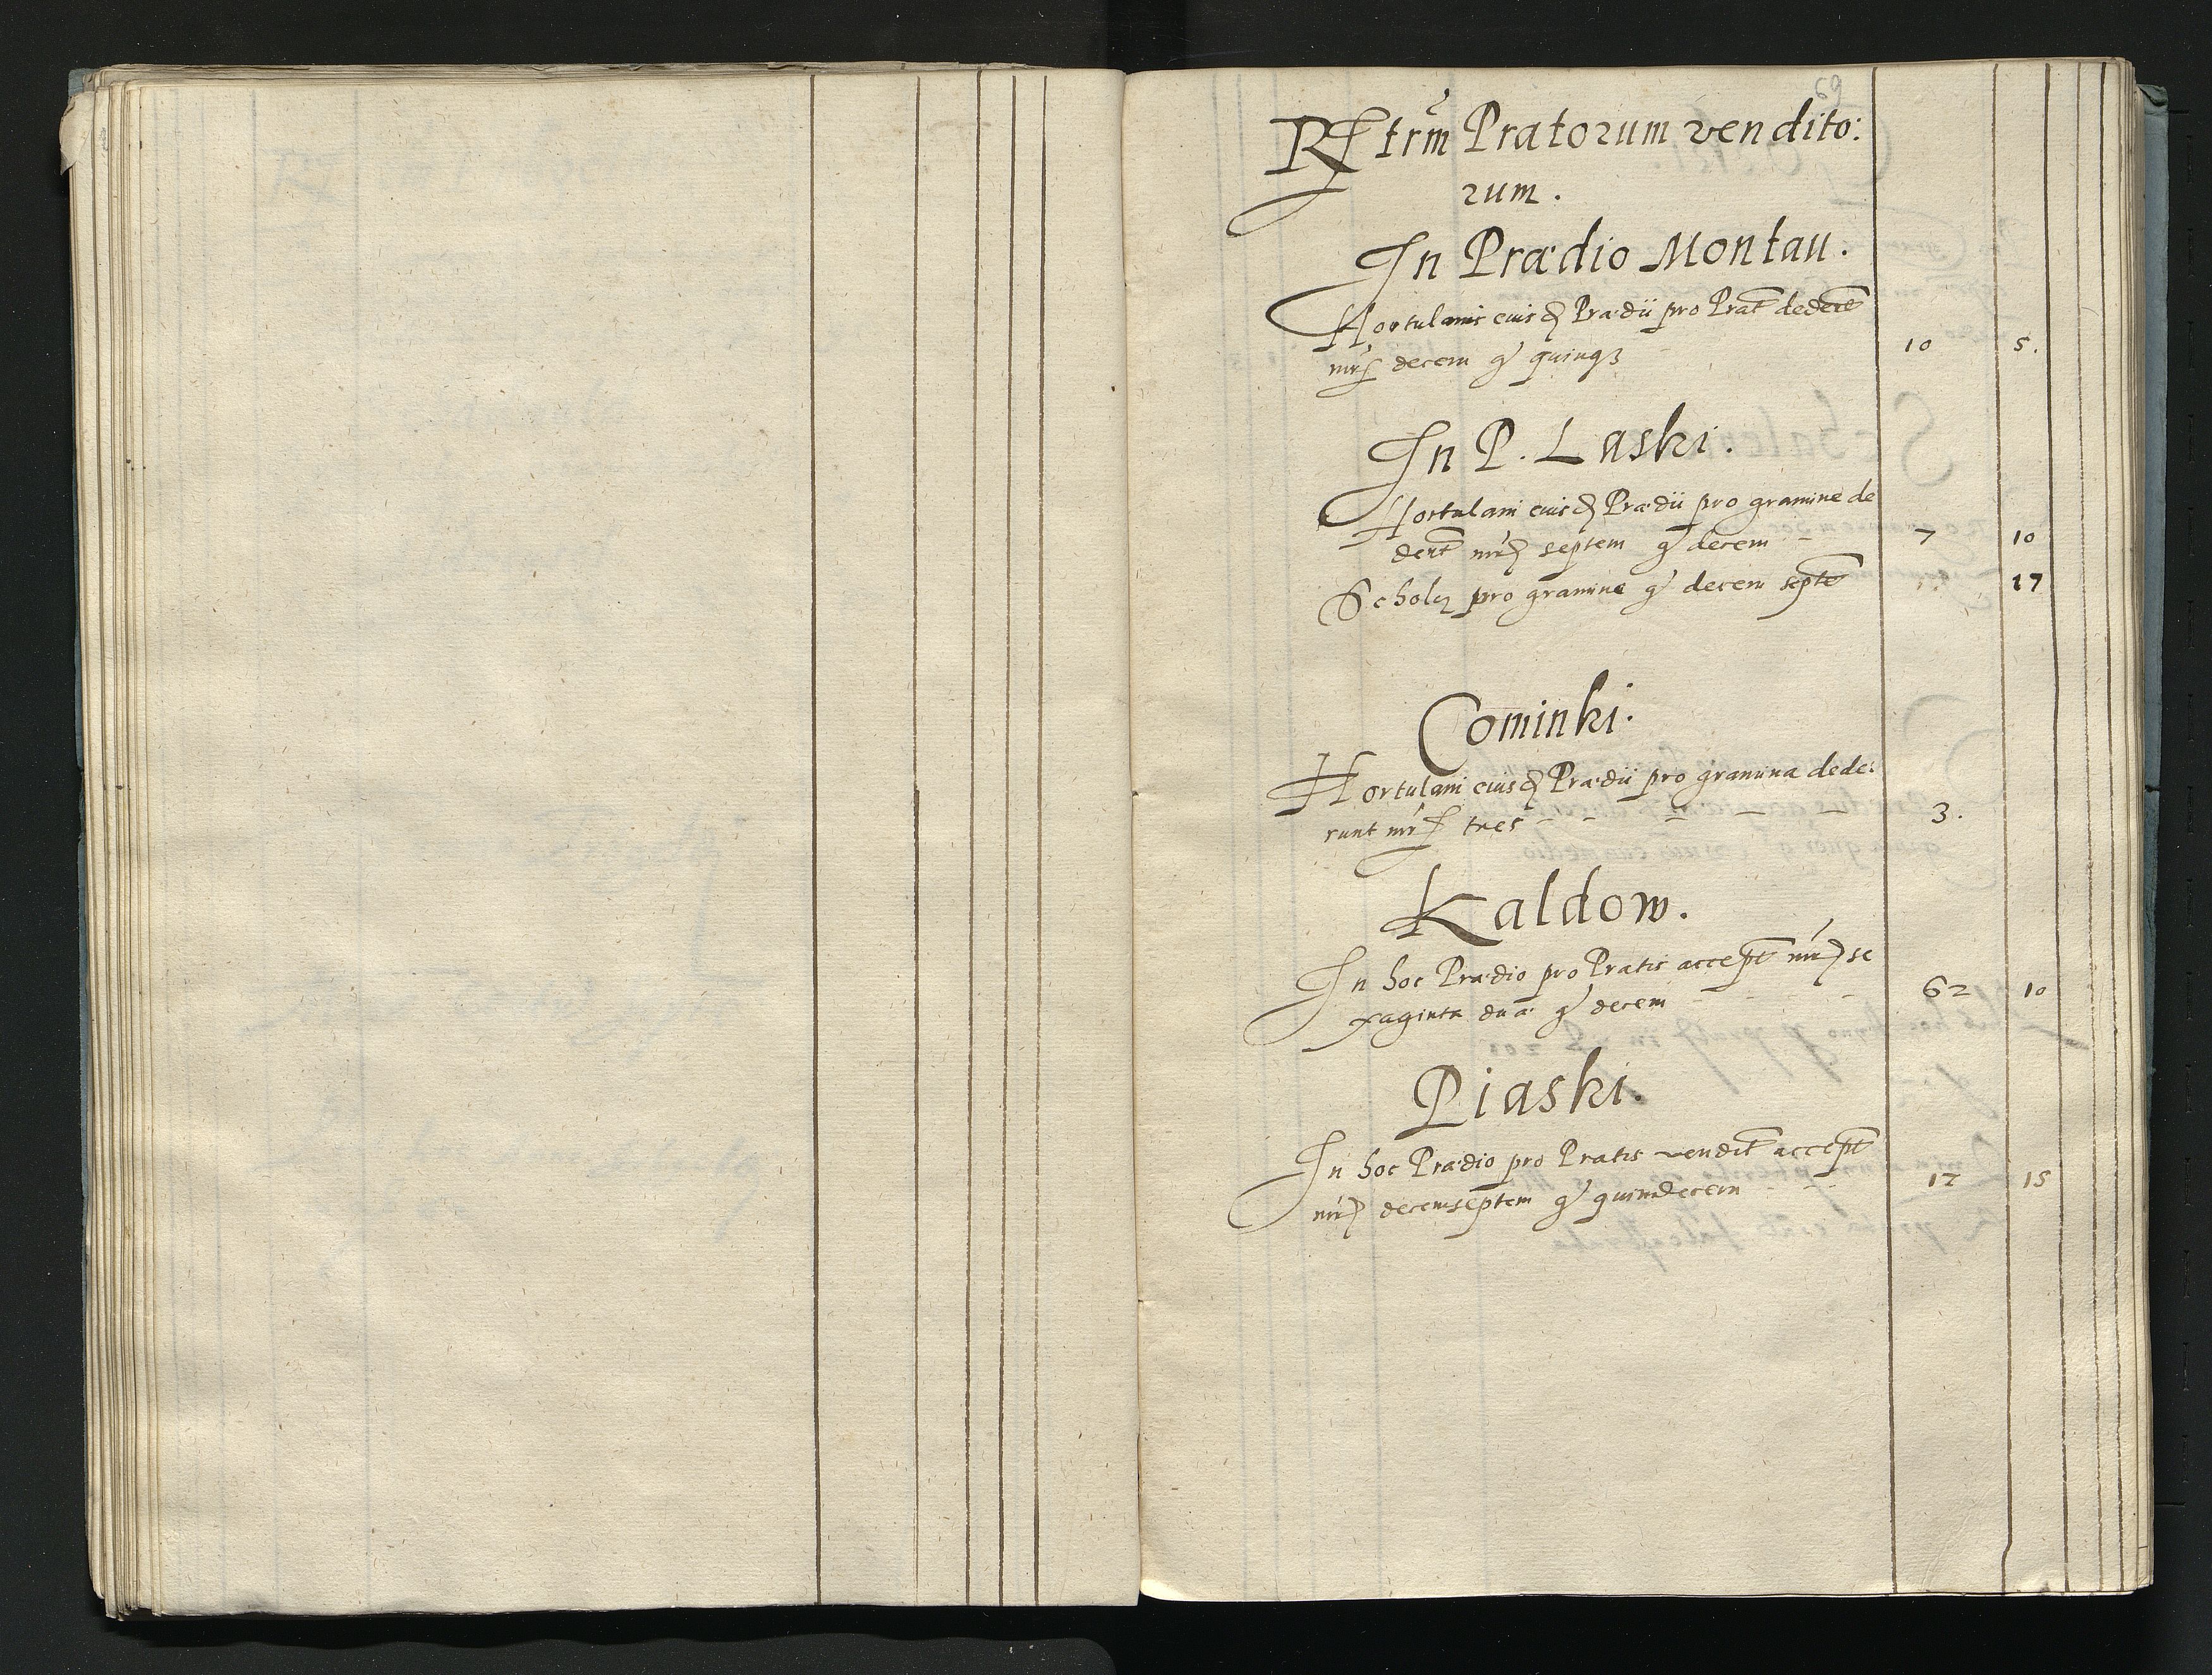 69
Rſtrm̃ Pratorum vendito:
rum.
In Prædio Montau.
Hortulanis eiusđ Prædii pro Prat̃ dedere͂
mrſ decem gͬ quinqꝫ 10 5.
In P. Laski.
Hortulani eiusđ Prædii pro gramine de
der̃t mrſ septem gͬ decem 7 10
Scholtz pro gramine gͬ decem septe͂ 17
Cominki.
Hortulani eiusđ Prædii pro gramina dede:
runt mrſ tres 3.
Kaldow.
In hoc Prædio pro Pratis accept̃ mrſ se
xaginta duæ gͬ decem 62 10
Piaski.
In hoc Prædio pro Pratis vendit̃ accept̃
mrſ decemseptem gͬ quindecem 17 15